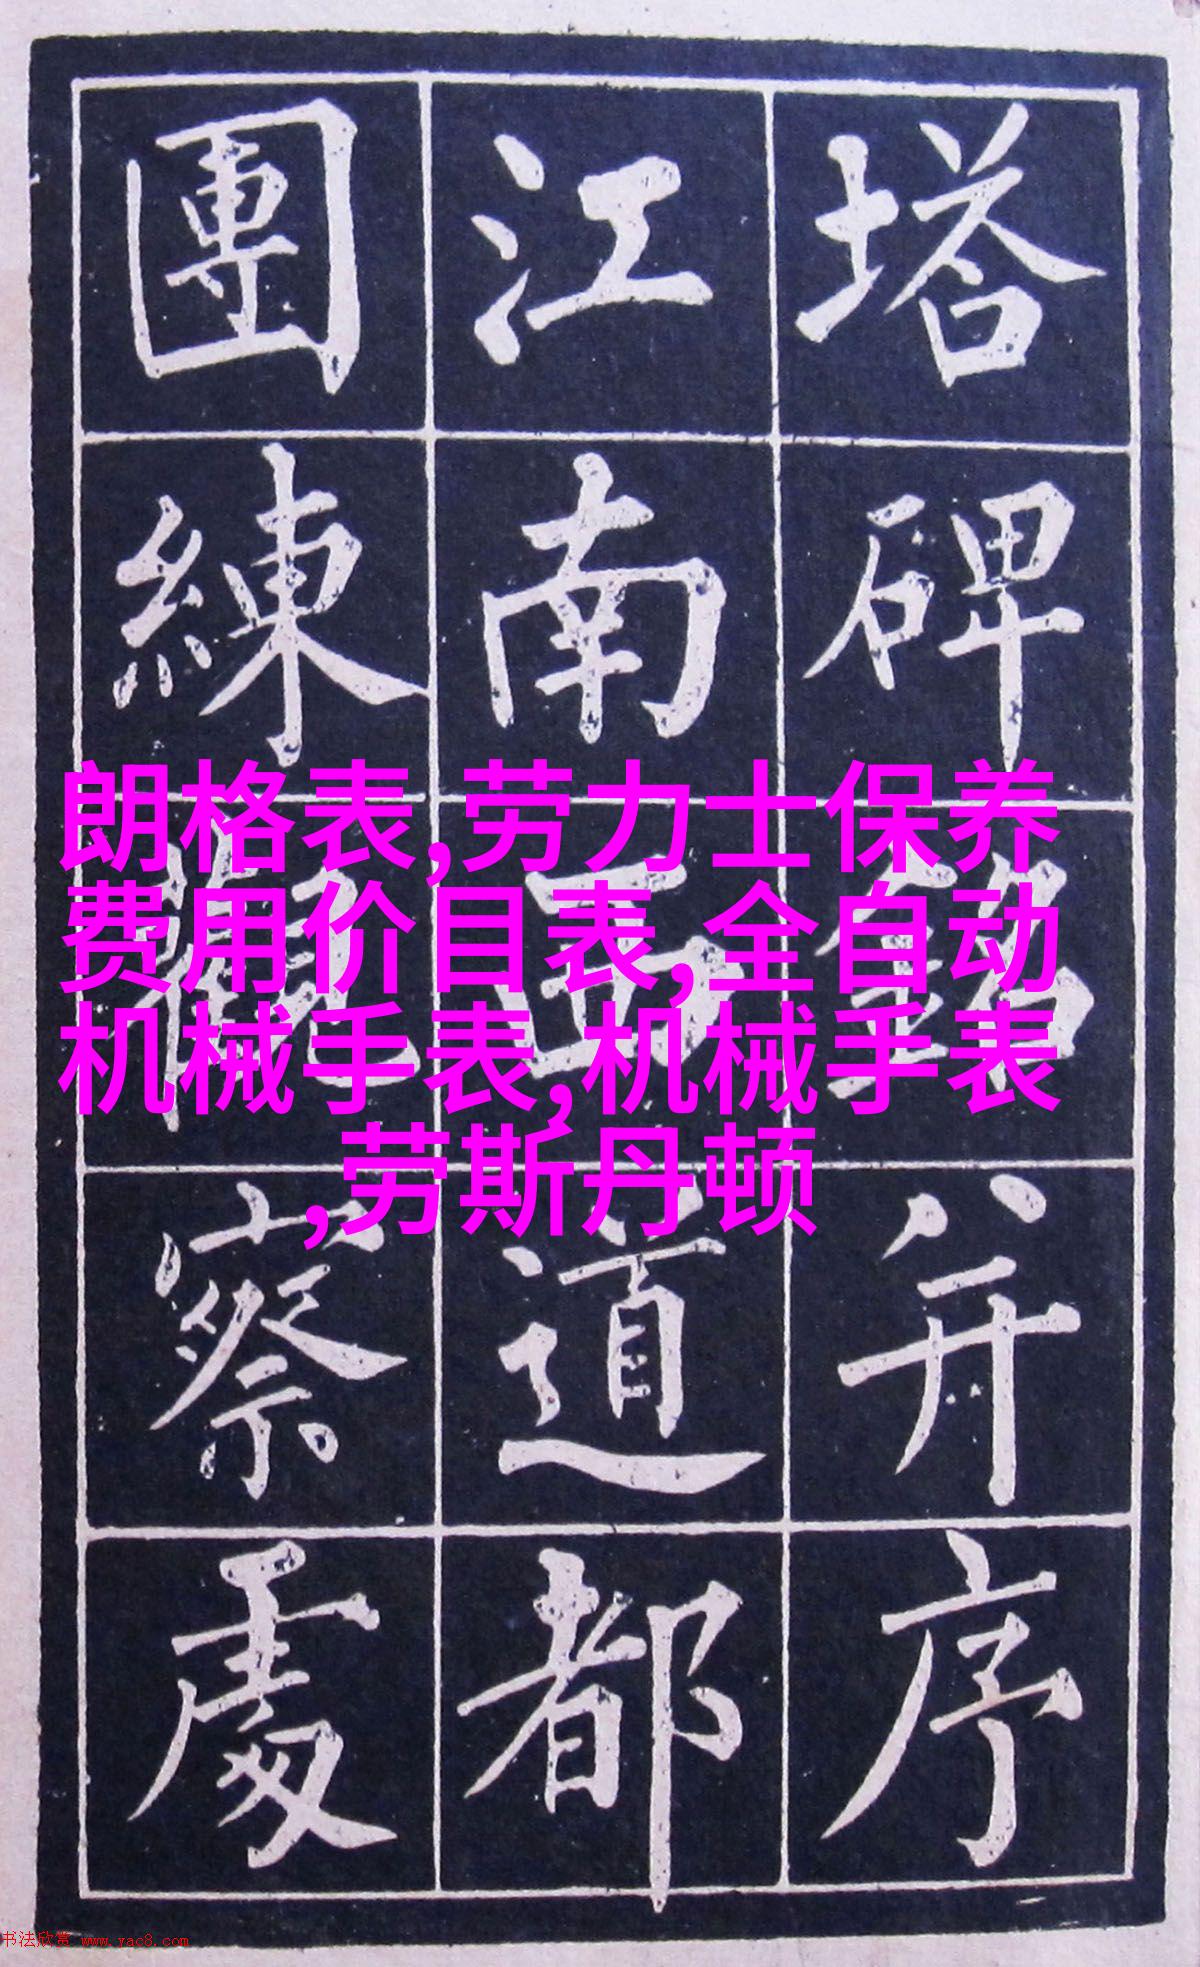 塔碑銘并序
江南西道都
團練觀察處
朗格表,劳力士保养
费用价目表,全自动
机械手表,机械手表
,劳斯丹顿
书法欣赏 www.yac8.com